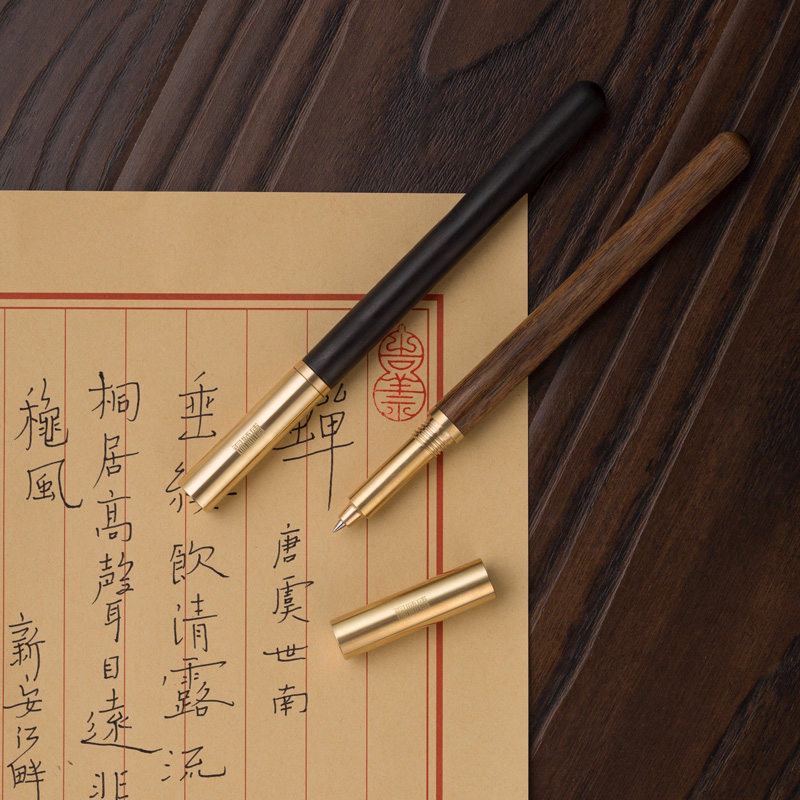 蟬
唐虞世南
垂 飲清露流
桐居高聲自遠非
穐風
新安江畔